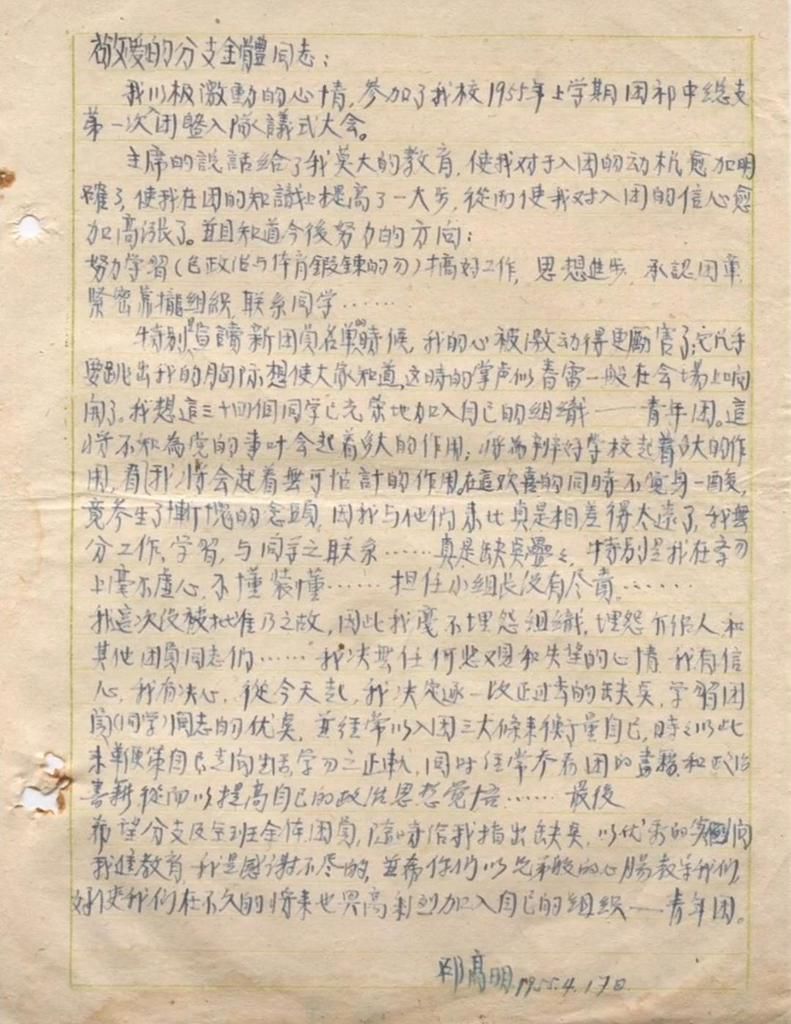 敬爱的分支全體同志：
我以极激動的心情，參加了我校1955年上学期团初中總支
第一次团暨入隊議式大会。
主席的説話給了我莫大的教育，使我对于入团的动机愈加明
確了，使我在团的知識上提高了一大步，從而使我对入团的信心愈
加高漲了。並且知道今後努力的方向：
努力学習(包政治与体育鍛鍊的习)搞好工作，思想進步，承認团章
緊密靠攏組織，联系同学……
特別宣讀新团員名单時候，我的心被激动得更厲害了，它几乎
要跳出我的胸际，想使大家知道，这時的掌声似春雷一般在会場上响
開了。我想這三十四個同学已光荣地加入自己的組織——青年团。這
将不知為党的事叶会起着多大的作用；将為辦好学校起着多大的作
用，看(我)将会起着無可估計的作用。在這欢喜的同時不
竟产生了慚愧的念頭，因我与他們来比真是相差得太遠了，我無
分工作，学習，与同学之联系……真是缺点疊疊，特別是我在学习
上毫不虚心，不懂装懂……担任小組長没有尽責……
我這次没被批准乃之故，因此我毫不埋怨組織，埋怨介绍人和
其他团員同志们……我决無任何悲观和失望的心情，我有信
心，我有决心，從今天起，我决定逐一改正过去的缺点，学習团
員(同学)同志的优点，並经常以入团三大條来衡量自己，時々以此
来鞭策自己走向生活学习之正軌，同时经常参看团的書籍和政治
書籍從而以提高自己的政治思想覚悟……最後
希望分支及全班全体团員，随時给我指出缺点，以优秀的
我進教育我是感谢不尽的，並希你们以兄弟般的心腸教导我们，
好使我们在不久的将来也異高利到加入自己的組織——青年团。
邓高明1955.4.17日